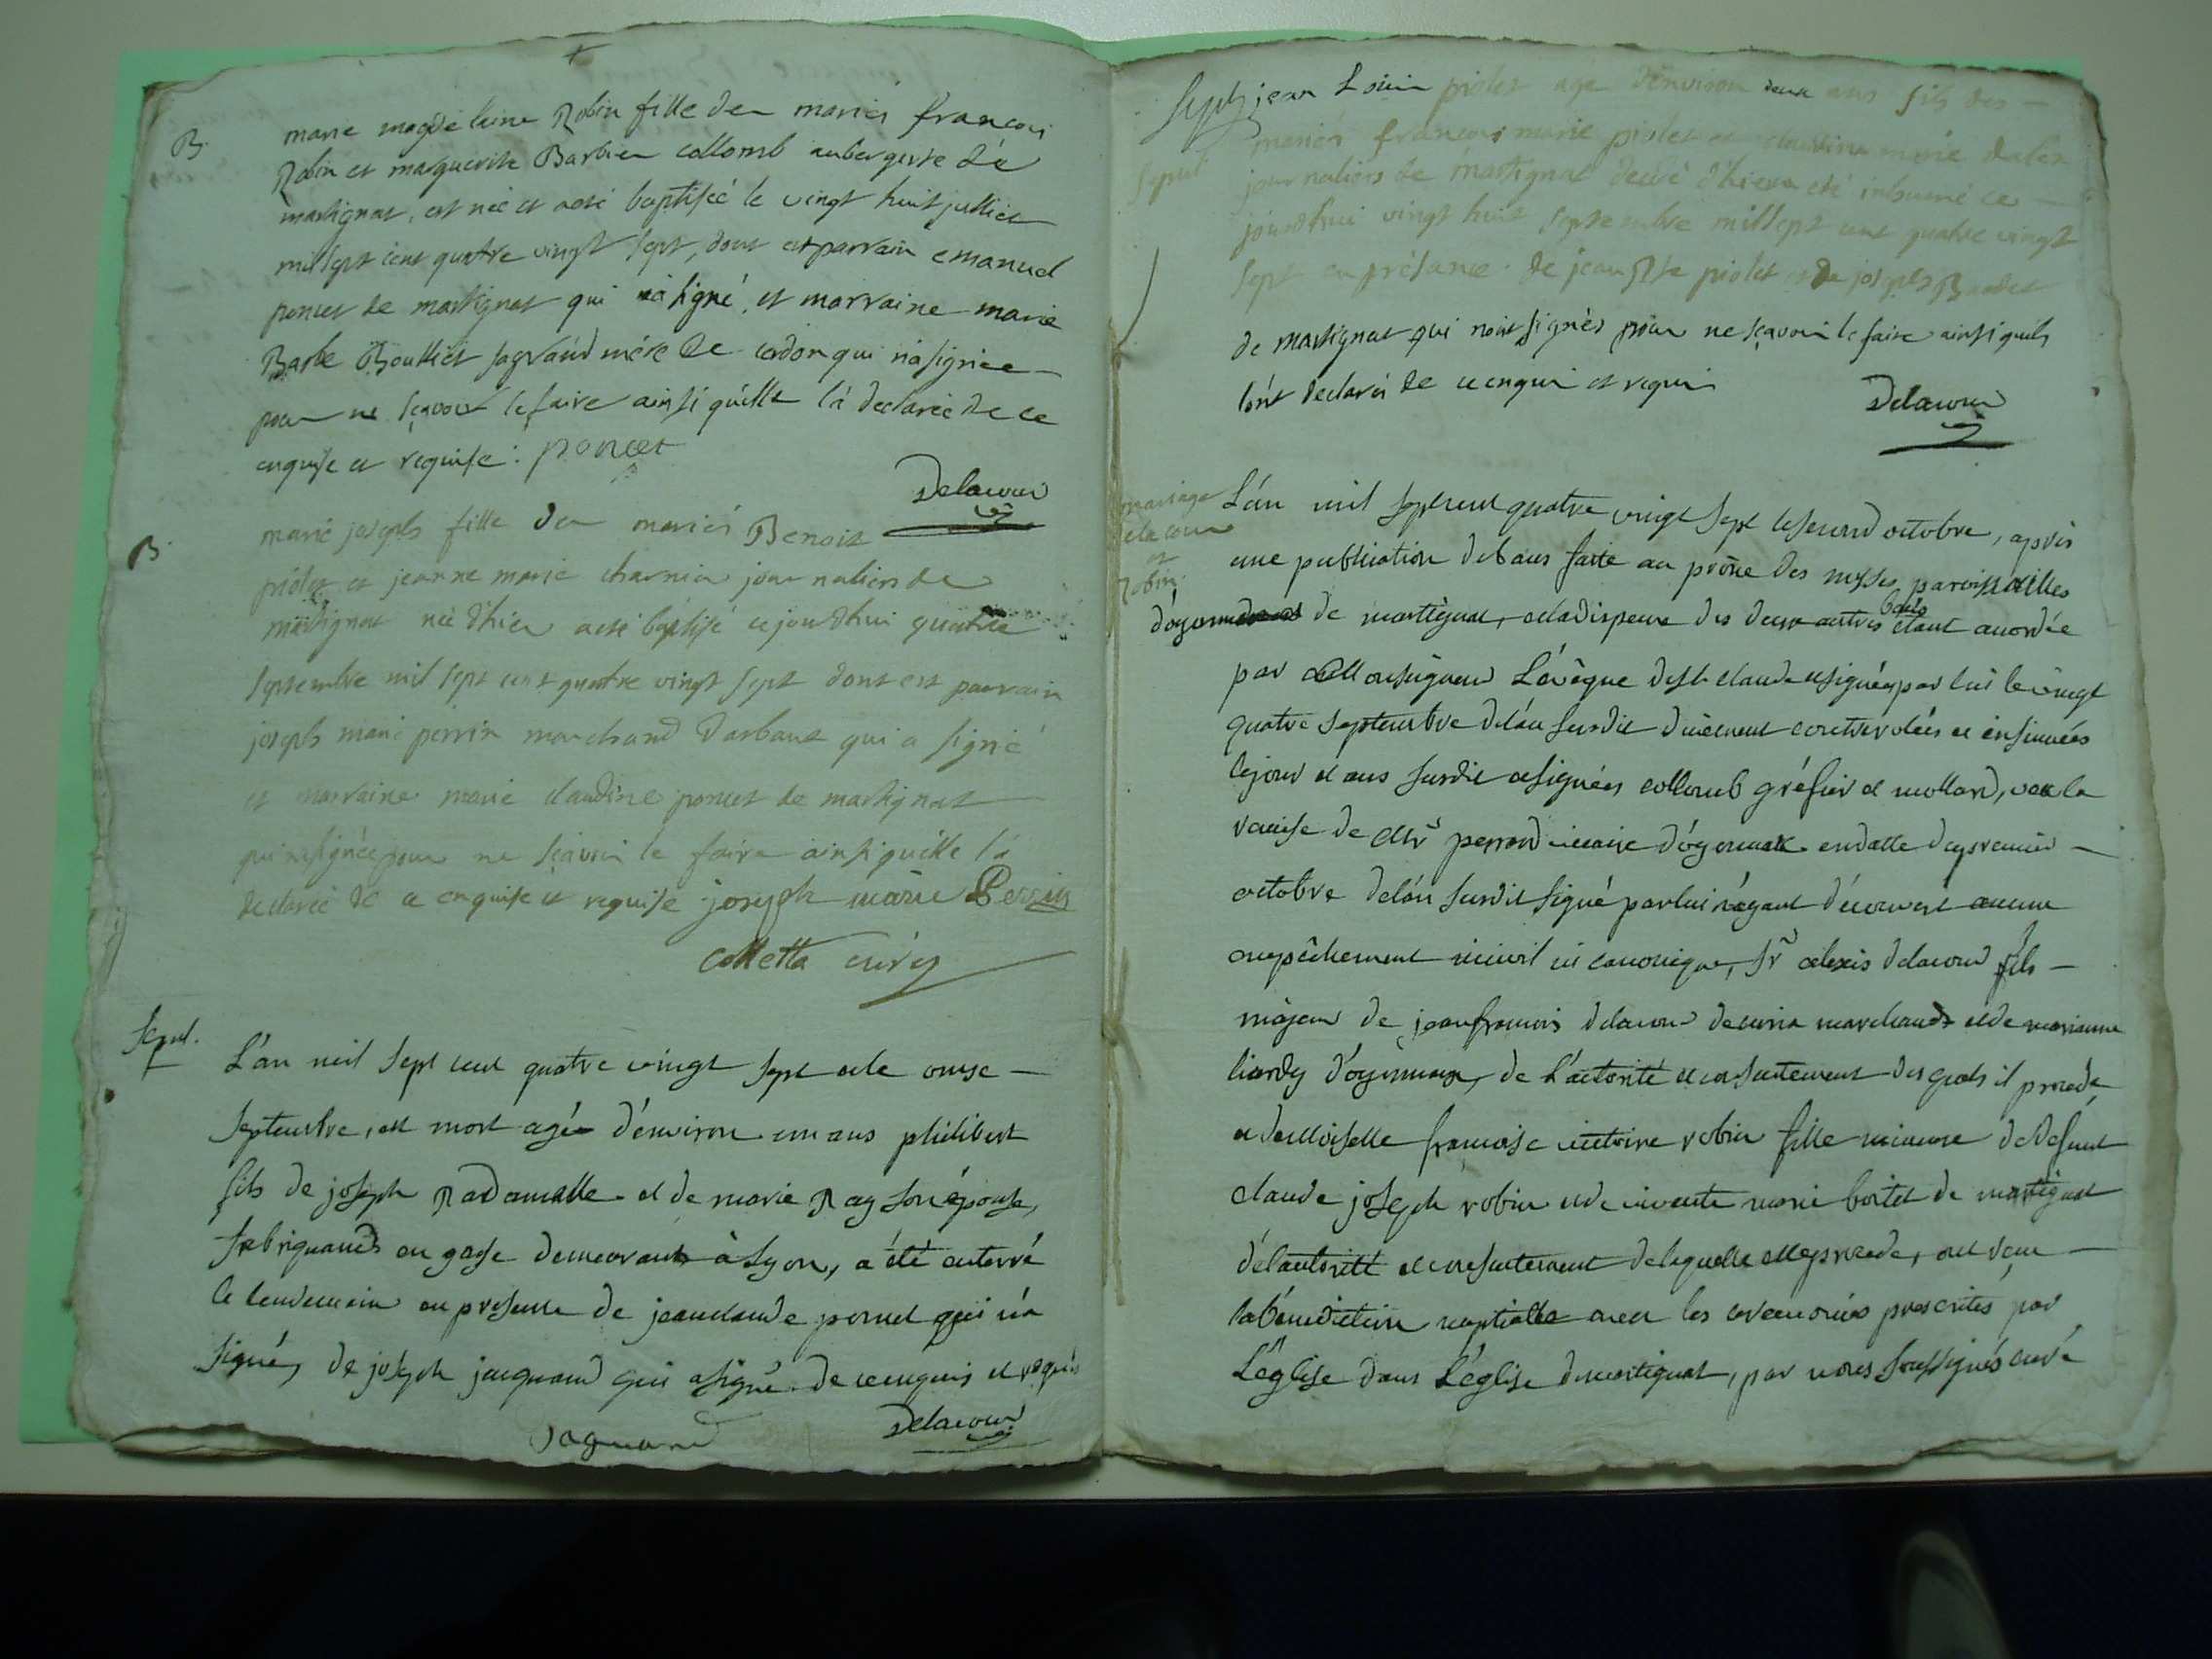 B.
marie magdeleine Robin fille des mariés francois
Robin et marguerite Barbier collomb aubergiste de
martignat, est née et a eté baptisée le vingt huit jullier
mil sept cent quatre vingt sept, dont est parrain emanuel
poncet de martignat qui a signé, et marraine marie
Barbe Boullier sa grand mére de cerdon qui n'a signée
pour ne sçavoir le faire ainsi qu'elle l'a declaré de ce
enquise et requise : poncet
Delacour
B.
marie joseph fille des mariés Benoit
piolet et jeanne marie charnier journaliers de
martignat née d'hier a eté baptisé ce jourdhui quatre
septembre mil sept cent quatre vingt sept dont est parrain
joseph marie perrin marchand d'arbant qui a signé
et marraine marie claudine poncet de martignat
qui n'a signée pour ne sçavoir le faire ainsi qu'elle l'a
declaré de ce enquise et requise joseph marie Perrin
Colletta curé
Sepul.
L'an mil sept cent quatre vingt sept et le onse
septembre, est mort agé d'environ un ans philibert
fils de joseph Radamelle et de marie Rey son épouse,
fabriquands en gase demeurants à Lyon, a été enterré
le lendemain en presence de jean claude pernet qui n'a
signé, de joseph jacquand qui a signé de ce enquis et requis
Jaquand
Delacour
Sept. jean Loüis piolet agé d'environ deux ans fils des
Sepul.
mariés francois marie piolet et claudine marie
journaliers de martignat decedé d'hier a eté inhumé ce
jourdhui vingt huit septembre mil sept cent quatre vingt
sept en présance de jean Bte piolet et de joseph
de martignat qui n'ont signés pour ne sçavoir le faire ainsi quils
l'ont declarés de ce enquis et requis
Delacour
mariage
delacour
et
Robin
L'an mil sept cent quatre vingt sept le second octobre, aprés
une publication de bans faite au prône des messes paroissialles
d'oyonnax et de martignat, et la dispense des deux autres bans étant accordée
par Monseigneur L'évêque de St. claude et signée par lui le vingt
quatre septembre de l'an susdit duëment controlées et insinuées
le jour et ans susdit et signées collomb gréfier et mollard, vu la
remise de Mr. perrod vicaire d'oyonnax en datte du premier
octobre de l'an susdit signé par lui n'ayant découvert aucun
empêchement ni civil ni canonique, Sr alexis delacour fils
majeur de jean francois delacour marchand et de marianne
liardy d'oyonnax, de l'autorité et consentement desquels il procede,
et demoiselle francoise victoire robin fille mineure de defunt
claude joseph robin et de vivante marie boitet de martignat
de l'autorité et consentement de laquelle elle procede, ont reçu
la bénédiction nuptialle avec les ceremonies prescrites par
L'église dans L'église de martignat, par nous soussignés curé